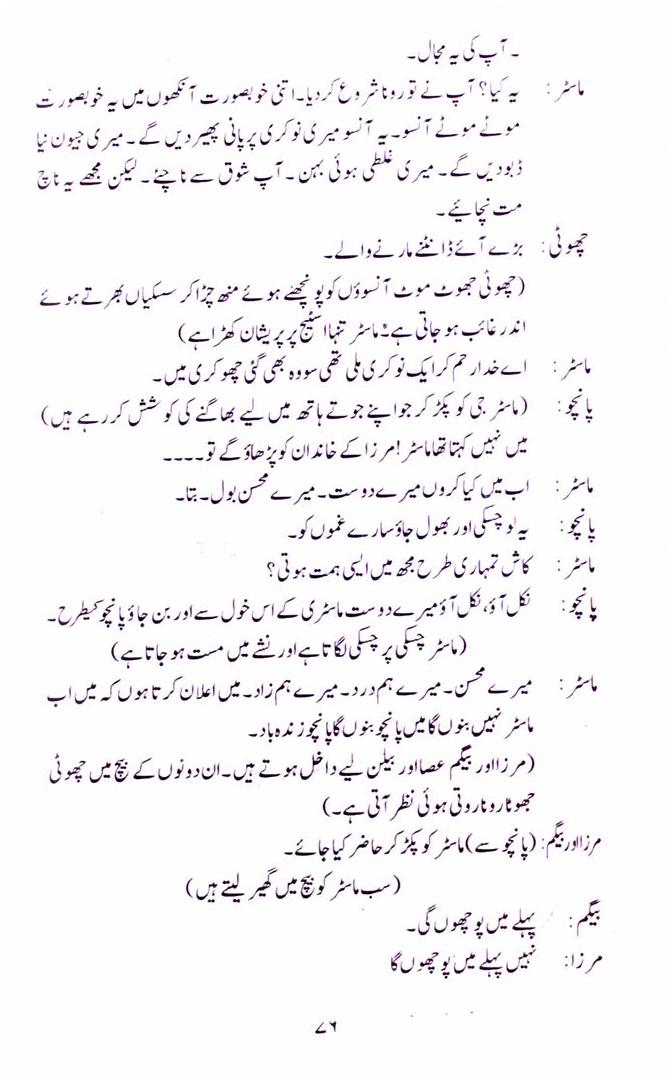 ۔ آپ کی یہ مجال۔
ماسٹر: یہ کیا؟ آپ نے تو رونا شروع کردیا۔ اتنی خوبصورت آنکھوں میں یہ خوبصورت
موٹے موٹے آنسو۔ یہ آنسو میری نوکری پر پانی پھیر دیں گے۔ میری جیون نیا
ڈبو دیں گے۔ میری غلطی ہوئی بہن۔ آپ شوق سے ناچئے۔ لیکن مجھے یہ ناچ
مت نچائیے۔
چھوٹی: بڑے آئے ڈانٹنے مارنے والے۔
(چھوٹی جھوٹ موٹ آنسوؤں کو پونچھتے ہوئے منھ چڑا کر سسکیاں بھرتے ہوئے
اندر غائب ہو جاتی ہے۔ ماسٹر تنہا اسٹیج پر پریشان کھڑا ہے)
ماسٹر: اے خدا رحم کر ایک نوکری ملی تھی سو وہ بھی گئی چھوکری میں۔
پانچو: (ماسٹر جی کو پکڑ کر جو اپنے جوتے ہاتھ میں لیے بھاگنے کی کوشش کر رہے ہیں)
میں نہیں کہتا تھا ماسٹر! مرزا کے خاندان کو پڑھاؤ گے تو۔۔۔۔
ماسٹر: اب میں کیا کروں میرے دوست۔ میرے محسن بول۔ بتا۔
پانچو: یہ لو چسکی اور بھول جاؤ سارے غموں کو۔
ماسٹر: کاش تمہاری طرح مجھ میں ایسی ہمت ہوتی؟
پانچو: نکل آؤ، نکل آؤ میرے دوست ماسٹری کے اس خول سے اور بن جاؤ پانچو کیطرح۔
(ماسٹر چسکی پر چسکی لگاتا ہے اور نشے میں مست ہو جاتا ہے)
ماسٹر: میرے محسن۔ میرے ہم درد۔ میرے ہم زاد۔ میں اعلان کرتا ہوں کہ میں اب
ماسٹر نہیں بنوں گا میں پانچو بنوں گا پانچو زندہ باد۔
(مرزا اور بیگم عصا اور بیلن لیے داخل ہوتے ہیں۔ ان دونوں کے بیچ میں چھوٹی
جھوٹا رونا روتی ہوئی نظر آتی ہے۔)
مرزا اور بیگم: (پانچو سے) ماسٹر کو پکڑ کر حاضر کیا جائے۔
(سب ماسٹر کو بیچ میں گھیر لیتے ہیں)
بیگم: پہلے میں پوچھوں گی۔
مرزا: نہیں پہلے میں پوچھوں گا
۷۶